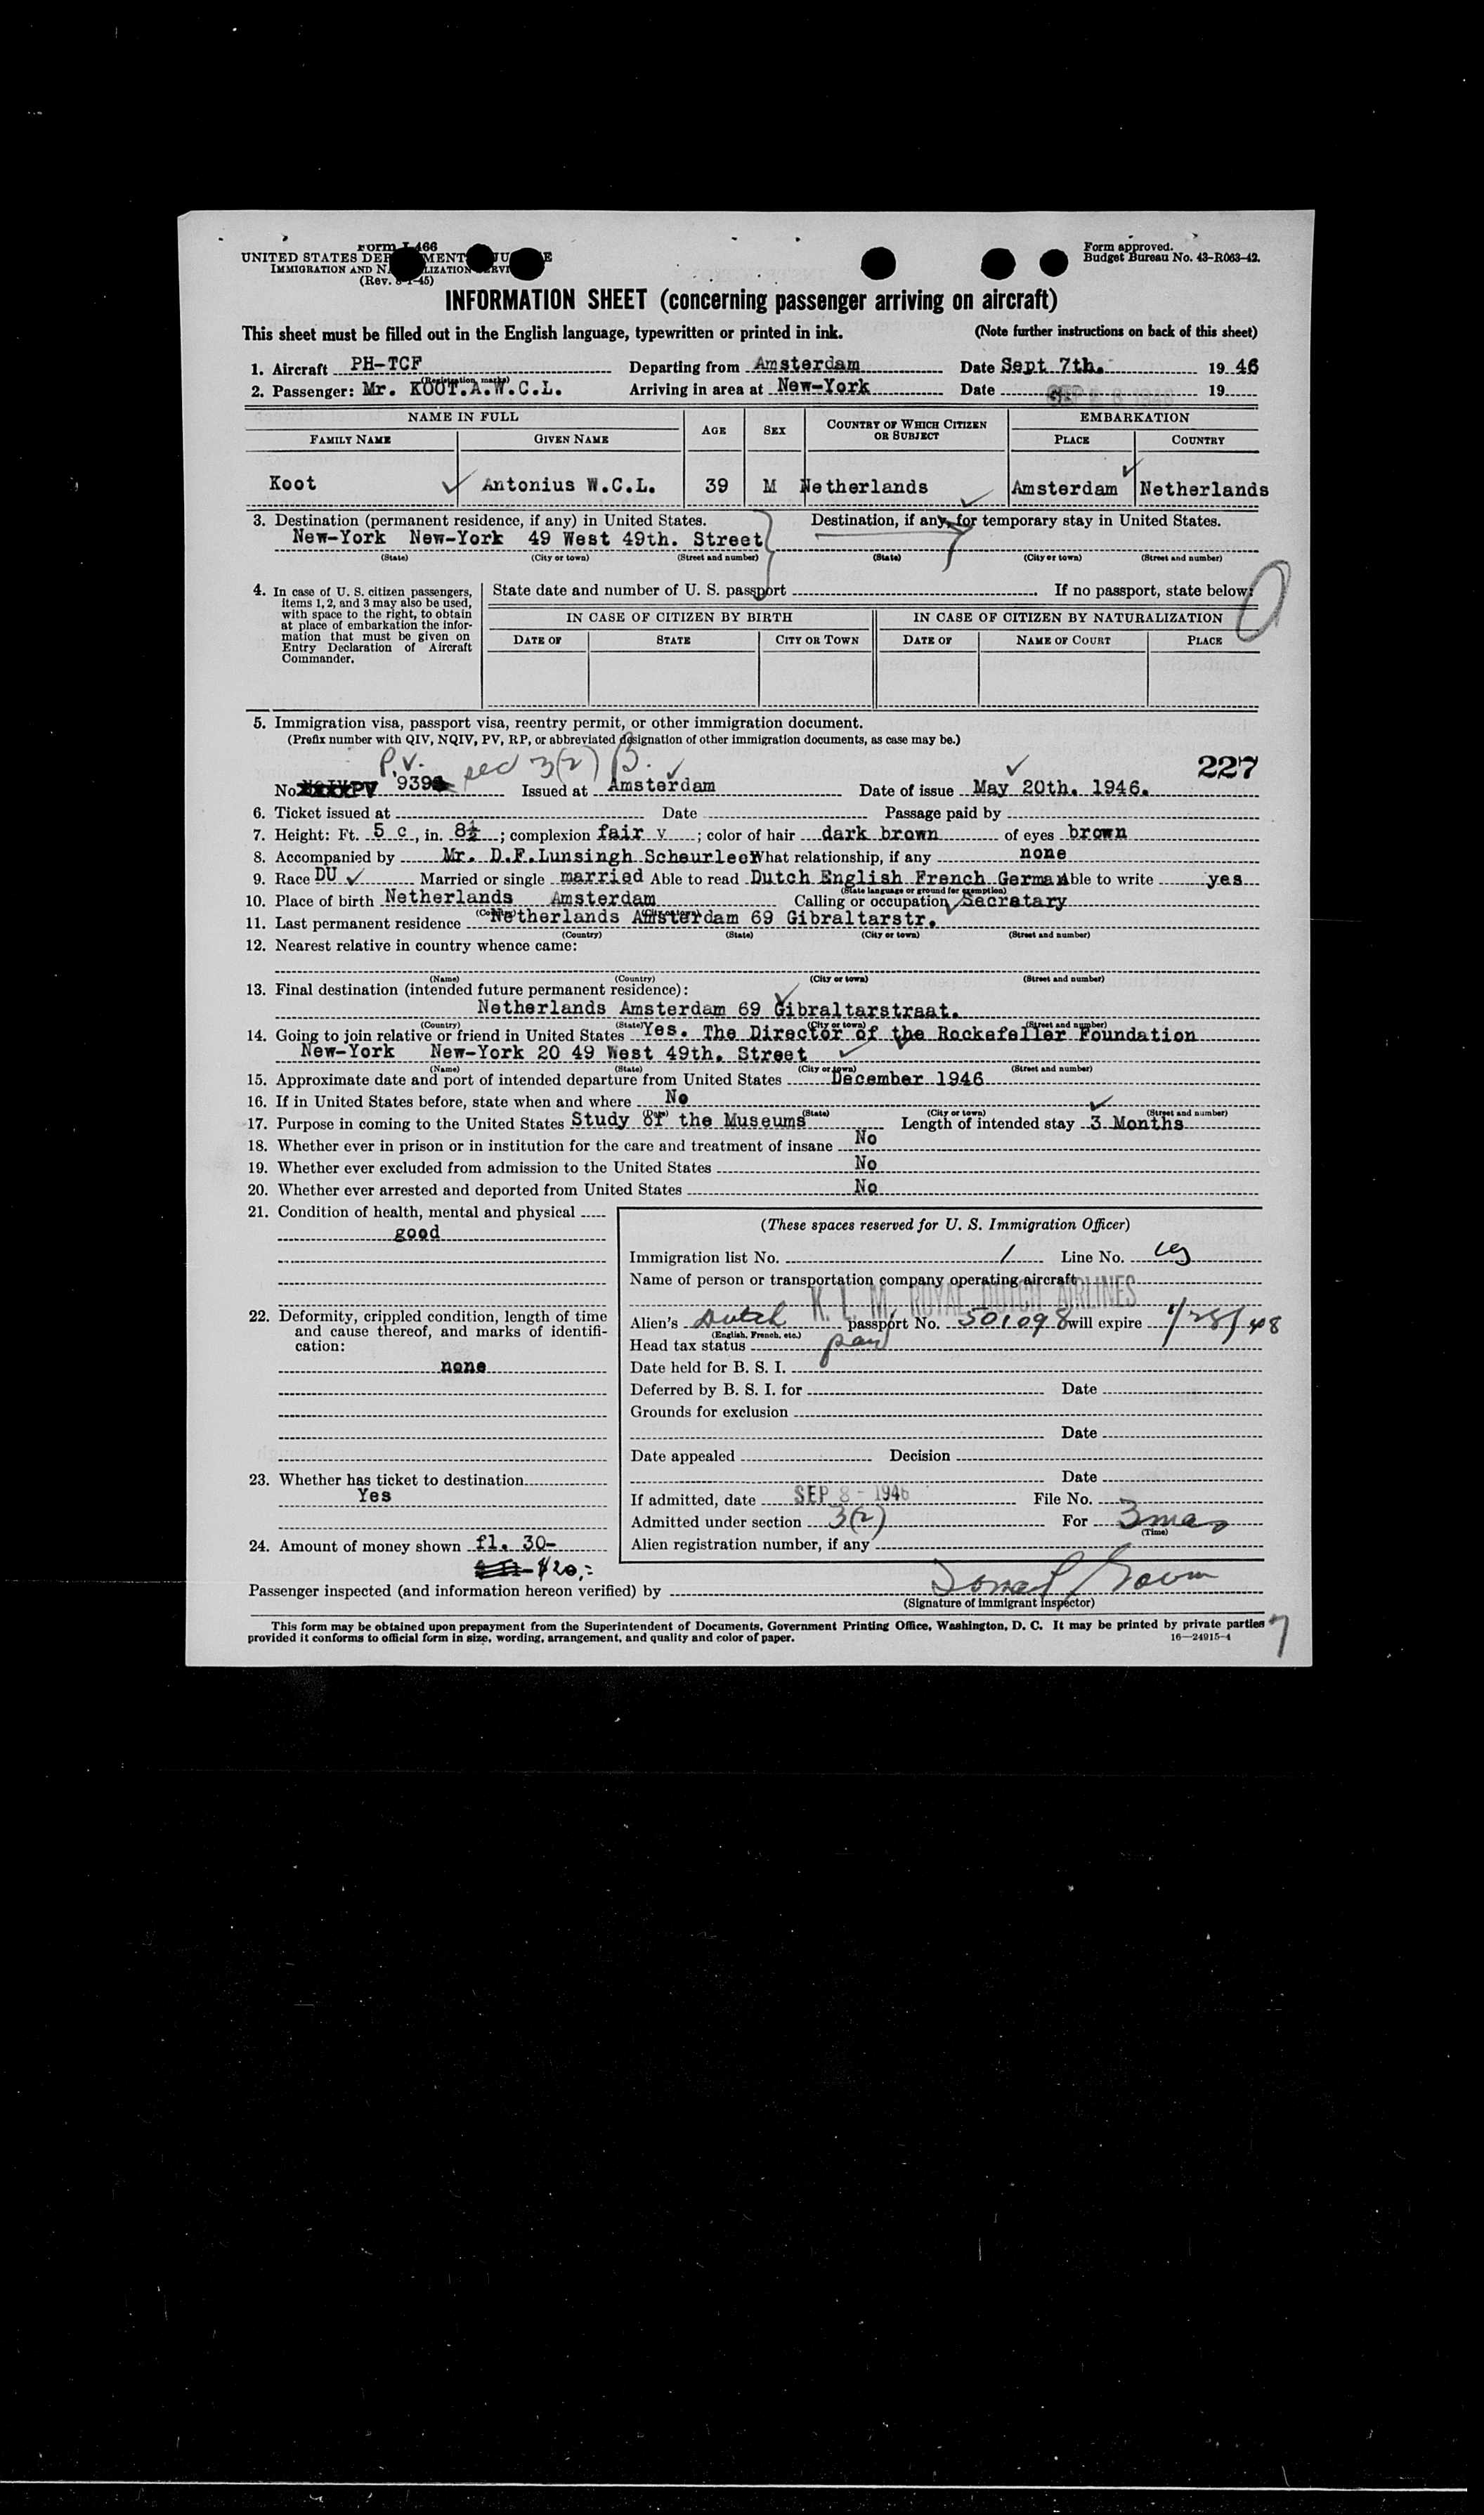 Form I-466
UNITED STATES DEPARTMENT OF JUSTICE
IMMIGRATION AND NATURALIZATION SERVICE
(Rev. 8-1-45)
Form approved.
Budget Bureau No. 43-R063-42.
INFORMATION SHEET (concerning passenger arriving on aircraft)
This sheet must be filled out in the English language, typewritten or printed in ink. (Note further instructions on back of this sheet)
1. Aircraft PH-TCF Departing from Amsterdam Date Sept 7th. 19 46
(Registration marks)
2. Passenger: Mr. KOOT.A.W.C.L. Arriving in area at New-York Date 19
NAME IN FULL AGE SEX COUNTRY OF WHICH CITIZEN OR SUBJECT EMBARKATION
FAMILY NAME GIVEN NAME PLACE COUNTRY
Koot Antonius W.C.L. 39 M Netherlands Amsterdam Netherlands
3. Destination (permanent residence, if any) in United States. Destination, if any, for temporary stay in United States.
New-York New-York 49 West 49th. Street
(State) (City or town) (Street and number) (State) (City or town) (Street and number)
4. In case of U. S. citizen passengers, items 1, 2, and 3 may also be used, with space to the right, to obtain at place of embarkation the information that must be given on Entry Declaration of Aircraft Commander.
State date and number of U. S. passport If no passport, state below:
IN CASE OF CITIZEN BY BIRTH IN CASE OF CITIZEN BY NATURALIZATION
DATE OF STATE CITY OR TOWN DATE OF NAME OF COURT PLACE
5. Immigration visa, passport visa, reentry permit, or other immigration document.
(Prefix number with QIV, NQIV, PV, RP, or abbreviated designation of other immigration documents, as case may be.)
P.V. sec 3(2) B. 227
No. PV 939 Issued at Amsterdam Date of issue May 20th. 1946.
6. Ticket issued at Date Passage paid by
7. Height: Ft. 5 c, in. 8½; complexion fair v; color of hair dark brown of eyes brown
8. Accompanied by Mr. D.F.Lunsingh Scheurleer What relationship, if any none
9. Race DU Married or single married Able to read Dutch English French German Able to write yes
(State language or ground for exemption)
10. Place of birth Netherlands Amsterdam Calling or occupation Secratary
(Country) (City or town)
11. Last permanent residence Netherlands Amsterdam 69 Gibraltarstr.
(Country) (State) (City or town) (Street and number)
12. Nearest relative in country whence came:
(Name) (Country) (City or town) (Street and number)
13. Final destination (intended future permanent residence):
Netherlands Amsterdam 69 Gibraltarstraat.
(Country) (State) (City or town) (Street and number)
14. Going to join relative or friend in United States Yes. The Director of the Rockefeller Foundation
New-York New-York 20 49 West 49th. Street
(Name) (State) (City or town) (Street and number)
15. Approximate date and port of intended departure from United States December 1946
16. If in United States before, state when and where No
(Date) (State) (City or town) (Street and number)
17. Purpose in coming to the United States Study of the Museums Length of intended stay 3 Months
18. Whether ever in prison or in institution for the care and treatment of insane No
19. Whether ever excluded from admission to the United States No
20. Whether ever arrested and deported from United States No
21. Condition of health, mental and physical
good
22. Deformity, crippled condition, length of time and cause thereof, and marks of identification:
none
23. Whether has ticket to destination
Yes
24. Amount of money shown fl. 30-
$20,-
(These spaces reserved for U. S. Immigration Officer)
Immigration list No. 1 Line No.
Name of person or transportation company operating aircraft
K. L. M. ROYAL DUTCH AIRLINES
Alien's Dutch passport No. 501098 will expire 1/28/48
(English, French, etc.)
Head tax status
Date held for B. S. I.
Deferred by B. S. I. for Date
Grounds for exclusion
Date
Date appealed Decision
Date
If admitted, date SEP 8 - 1946 File No.
Admitted under section 3(2) For 3 mos
(Time)
Alien registration number, if any
Passenger inspected (and information hereon verified) by
(Signature of Immigrant Inspector)
This form may be obtained upon prepayment from the Superintendent of Documents, Government Printing Office, Washington, D. C. It may be printed by private parties
provided it conforms to official form in size, wording, arrangement, and quality and color of paper. 16—24915-4